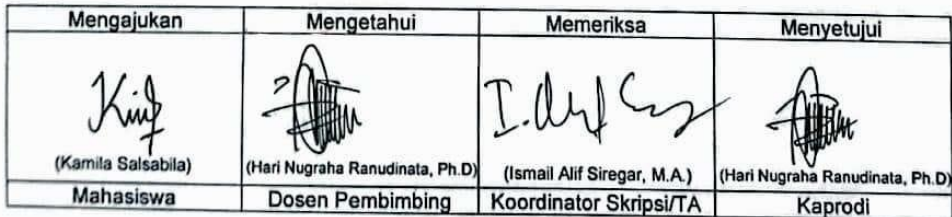 Mengajukan Mengetahui Memeriksa Menyetujui
(Kamila Salsabila) (Hari Nugraha Ranudinata, Ph.D) (Ismail Alif Siregar, M.A.) (Hari Nugraha Ranudinata, Ph.D)
Mahasiswa Dosen Pembimbing Koordinator Skripsi/TA Kaprodi